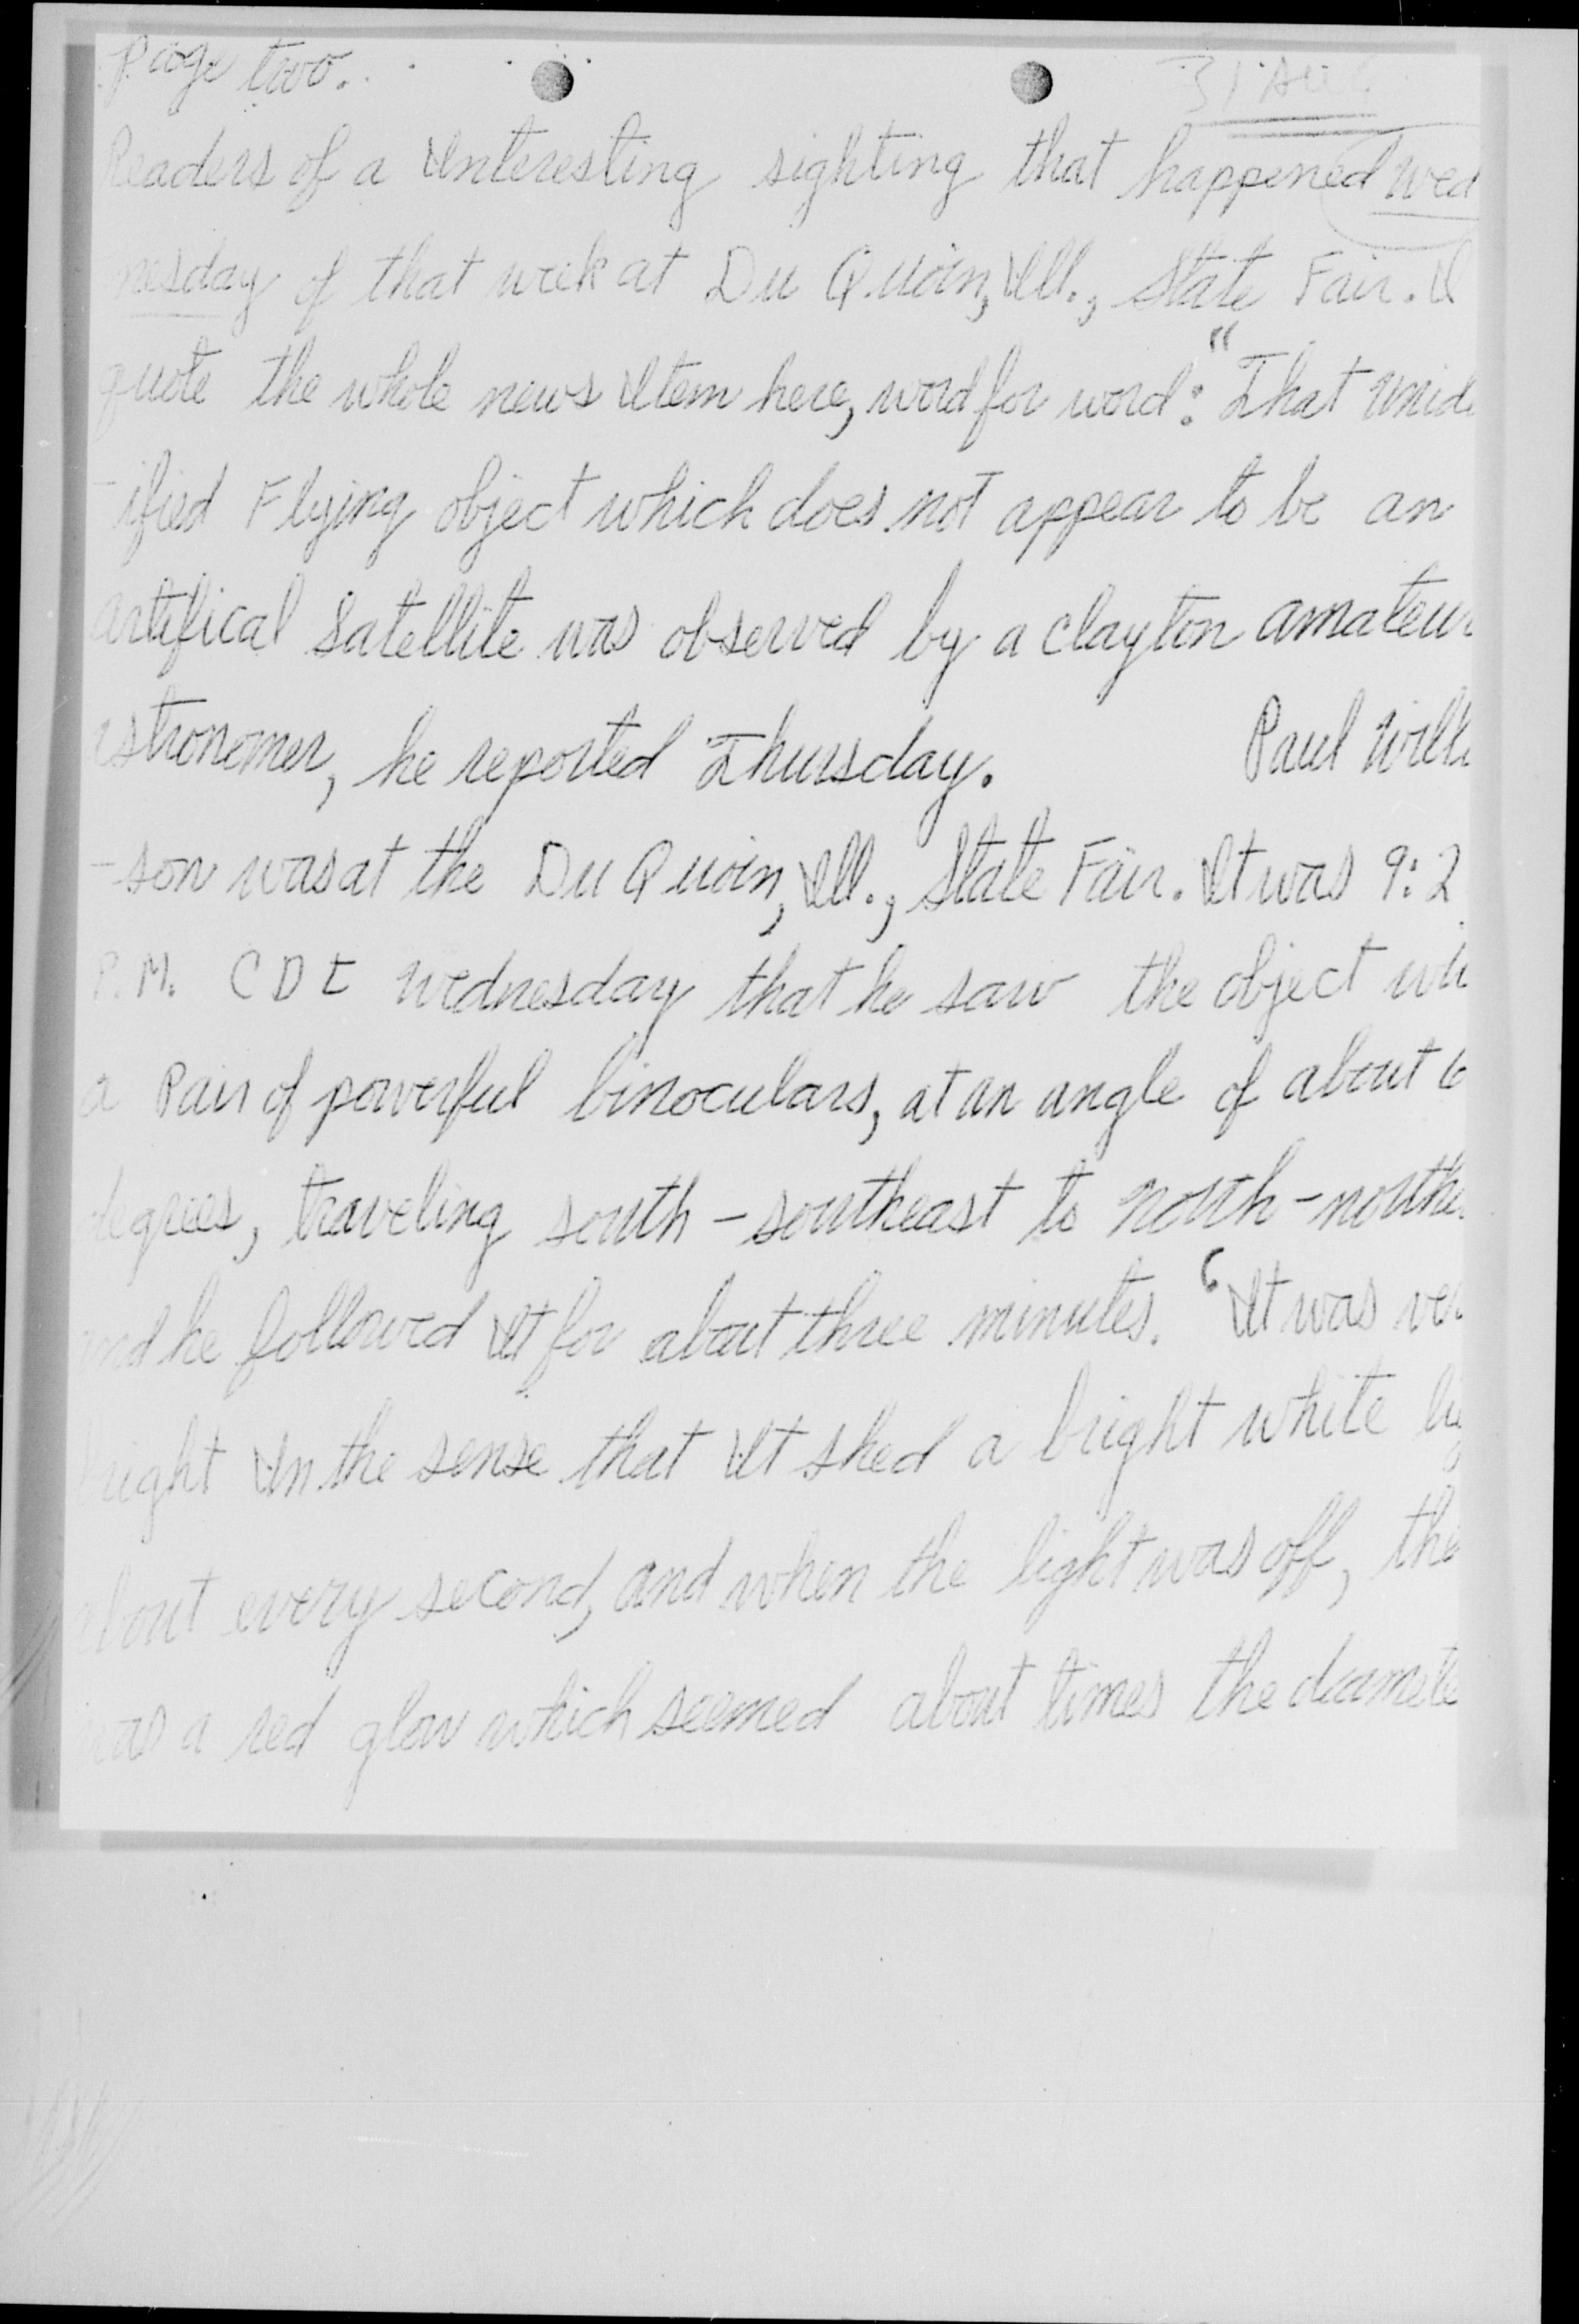 Page two.
31 Aug
Readers of a Interesting sighting that happened Wed
nesday of that week at Du Quoin, Ill., State Fair. I
quote the whole news Item here, word for word: "That unid
-ified Flying object which does not appear to be an
artifical Satellite was observed by a Clayton amateur
astronomer, he reported Thursday. Paul Wilk
-son was at the Du Quoin, Ill., State Fair. It was 9:2
P.M. CDT Wednesday that he saw the object wi
a Pair of powerful binoculars, at an angle of about 6
degrees, traveling south-southeast to north-northe
and he followed It for about three minutes. 'It was ver
bright In the sense that It shed a bright white lig
about every second, and when the light was off, the
was a red glow which seemed about times the diamete